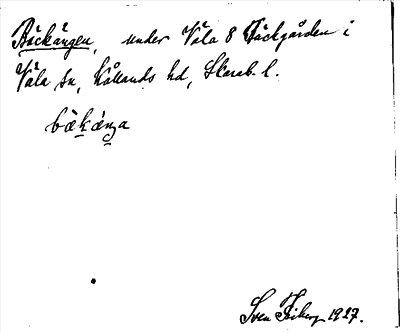 Bäckängen, under Väla 8 Bäckgården i
Väla sn, Kållands hd, Skarab. l.
bäkäŋa
Sven Friberg 1927.